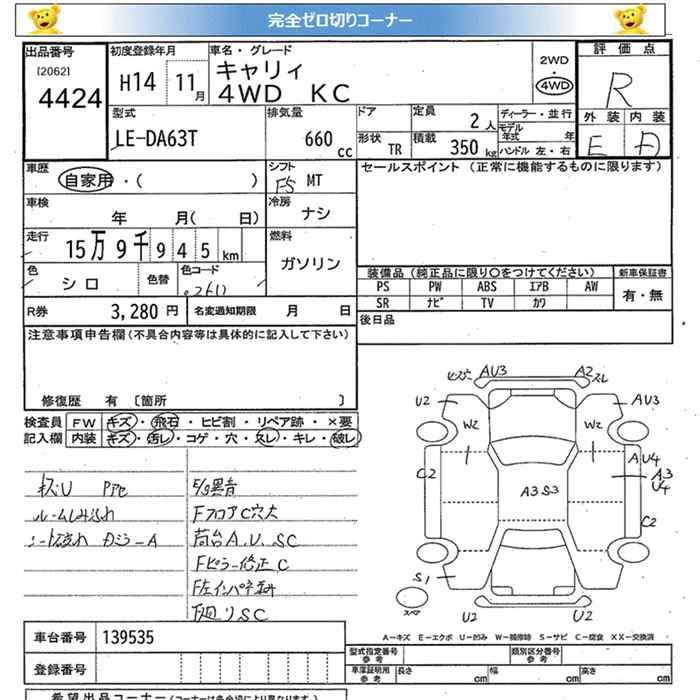 完全ゼロ切りコーナー
出品番号
[2062]
4424
初度登録年月
H14 11月
車名・グレード
キャリィ
4WD KC
2WD
4WD
評価点
R
外装 内装
E D
型式
LE-DA63T
排気量
660 cc
ドア
形状 TR
定員
2人
積載
350 kg
ディーラー・並行
モデル年式 年
ハンドル 左・右
車歴
自家用・( )
シフト
F5 MT
セールスポイント (正常に機能するものに限ります)
車検
年 月( 日)
冷房
ナシ
走行
15万9千945km
燃料
ガソリン
色
シロ
色替
色コード
装備品 (純正品に限り○をつけてください)
新車保証書
PS PW ABS エアB AW
SR ナビ TV カワ
有・無
R券
3,280円
名変通知期限 月 日
後日品
注意事項申告欄 (不具合内容等は具体的に記入して下さい)
修復歴 有 〔箇所 〕
検査員記入欄
FW キズ・飛石・ヒビ割・リペア跡・×要
内装 キズ・汚レ・コゲ・穴・スレ・キレ・破レ
キズU
ルームしみ汚れ
シート破れ カビミラーA
F/g異音
FフロアC穴大
荷台A.U.SC
Fピラー修正C
F左インパネ歪み
下廻りSC
AU3 A2スレ
U2 AU3
W2 W2
C2 AU4
A3S3 A3
U4
C2
S1
スペア
U2 U2
A-キズ E-エクボ U-凹み W-補修跡 S-サビ C-腐食 XX-交換済
車台番号 139535
登録番号
型式指定番号 参考
類別区分番号 参考
車庫証明用 参考 長さ cm 幅 cm 高さ cm
希望出品コーナー (コーナーは各会場により異なります)